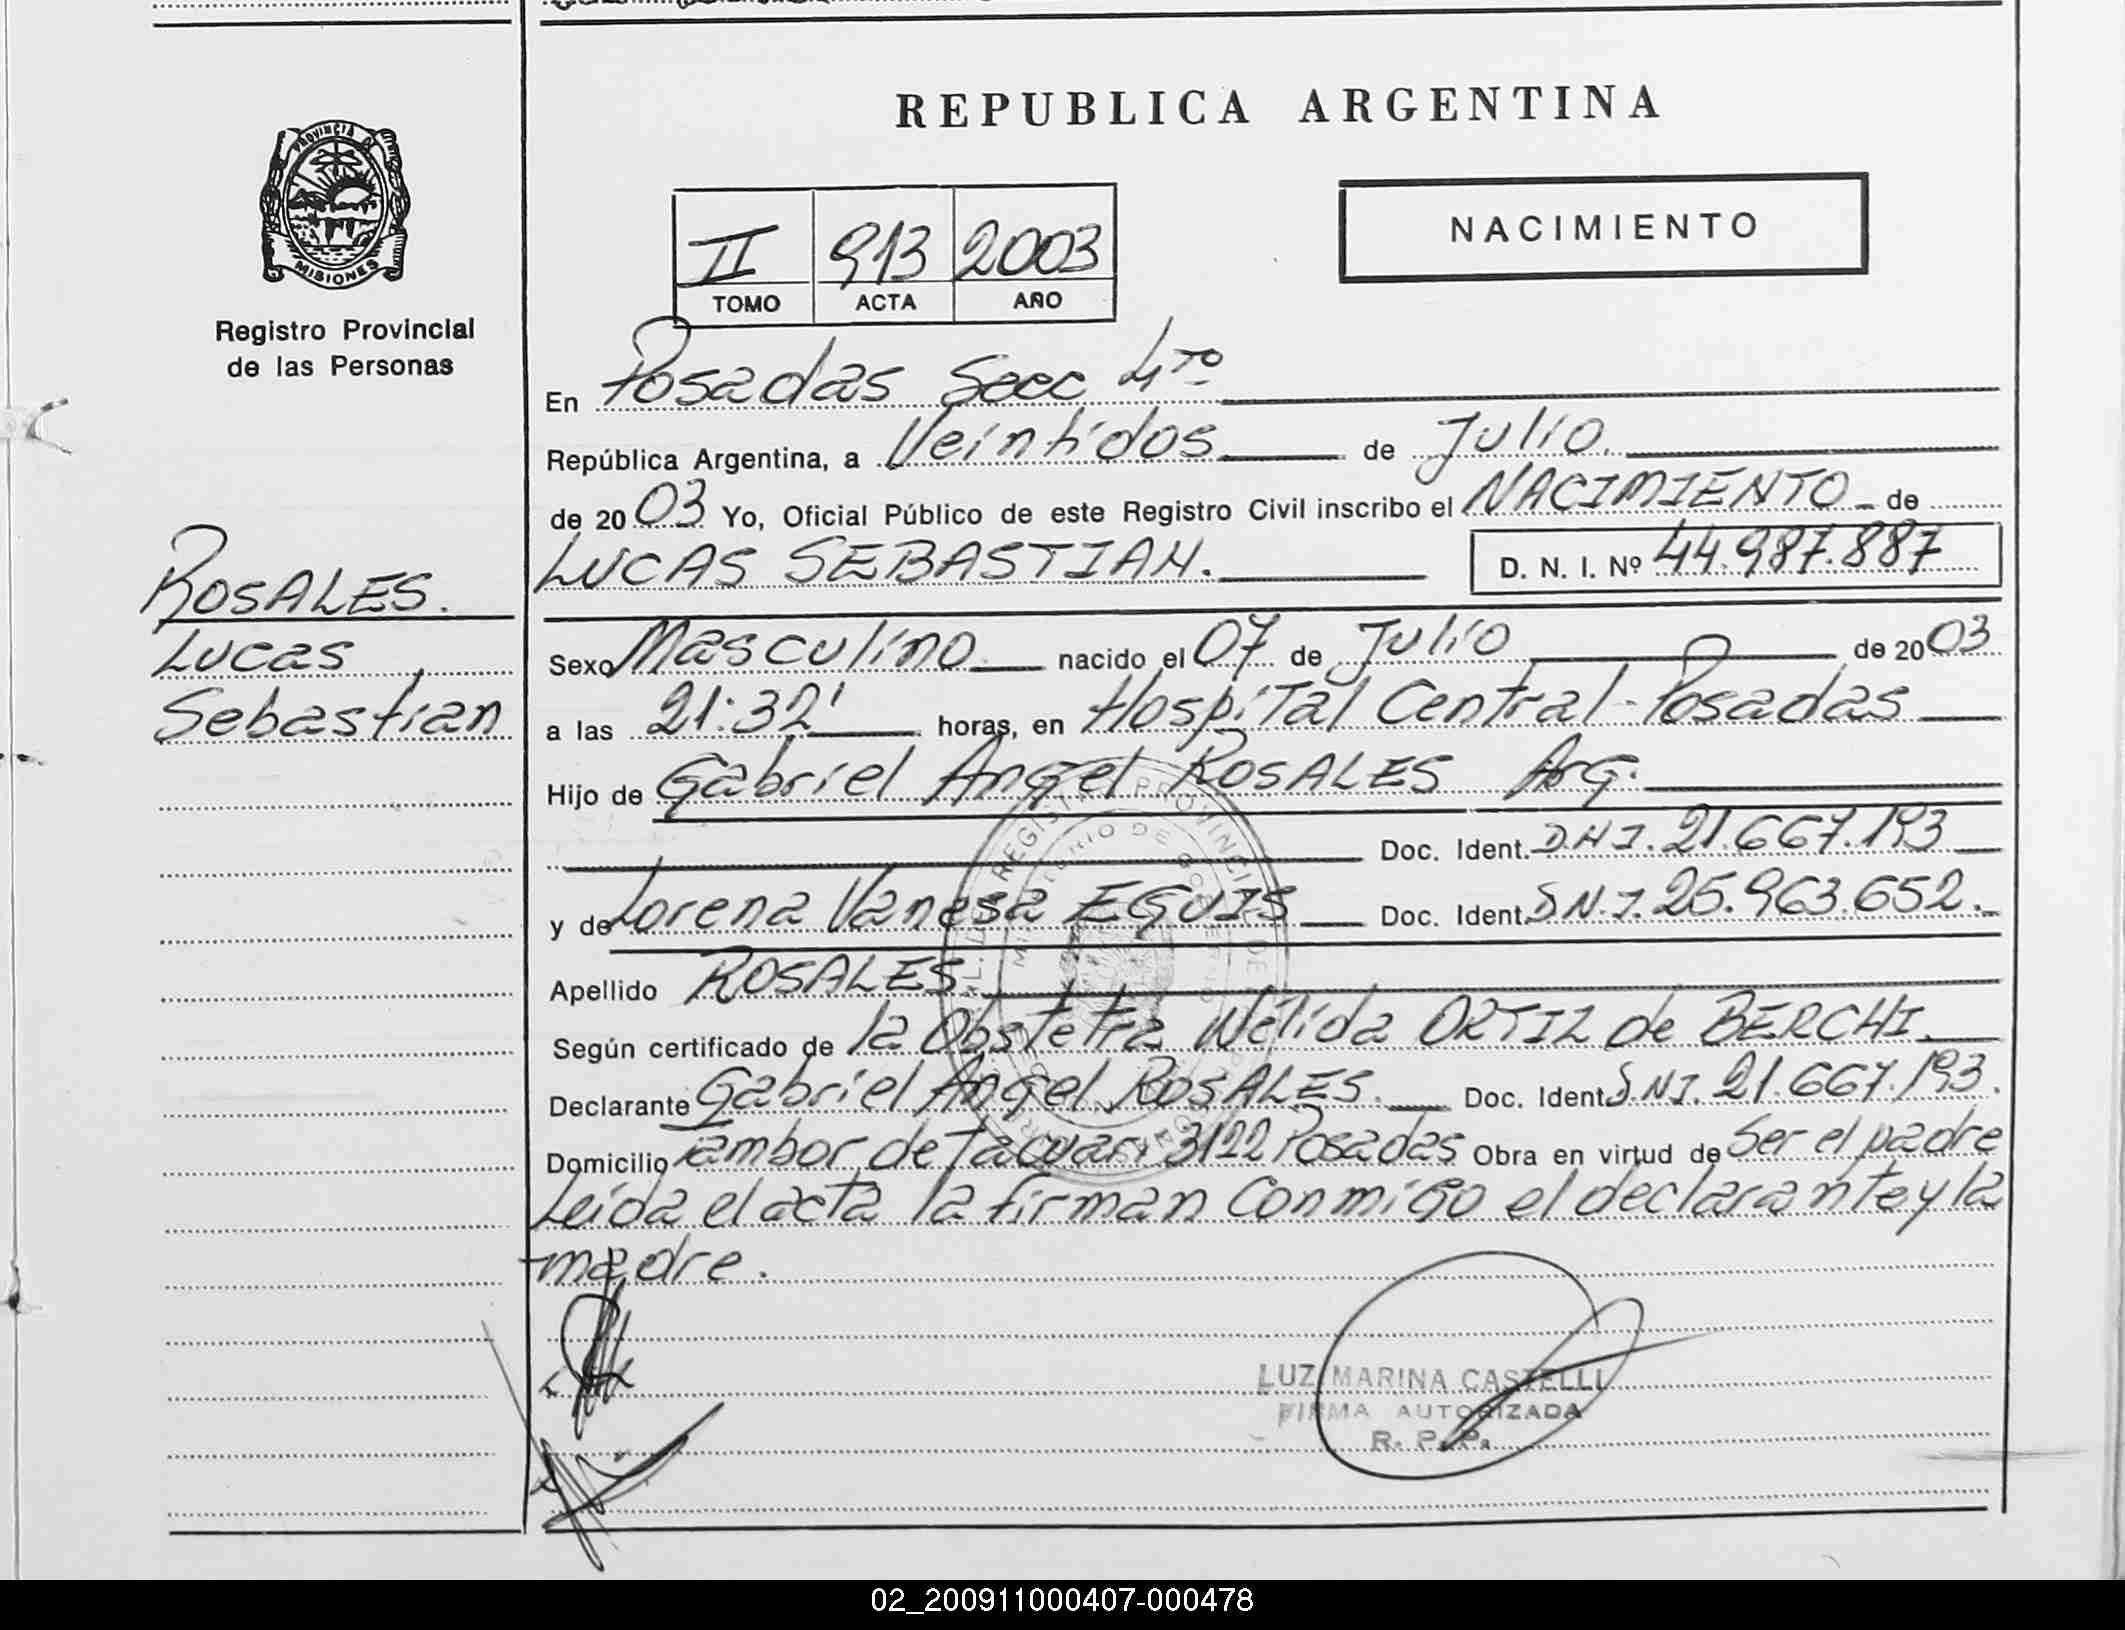 REPUBLICA ARGENTINA
PROVINCIA DE
MISIONES
Registro Provincial
de las Personas
NACIMIENTO
II 913 2003
TOMO ACTA AÑO
En Posadas Secc 4to
República Argentina, a Veintidos de Julio.
de 2003 Yo, Oficial Público de este Registro Civil inscribo el NACIMIENTO de
LUCAS SEBASTIAN. D. N. I. Nº 44.987.887
ROSALES.
Lucas
Sebastian
Sexo Masculino nacido el 07 de Julio de 2003
a las 21:32' horas, en Hospital Central - Posadas
Hijo de Gabriel Angel ROSALES Arg.
Doc. Ident. D.N.I. 21.667.193
y de Lorena Vanesa EGUIS Doc. Ident. D.N.I. 25.963.652.
Apellido ROSALES.
Según certificado de la Obstetra Nélida ORTIZ de BERCHI.
Declarante Gabriel Angel ROSALES. Doc. Ident. D.N.I. 21.667.193.
Domicilio Tambor de Tacuari 3122 Posadas Obra en virtud de Ser el padre
Leída el acta la firman conmigo el declarante y la
madre.
LUZ MARINA CASTELLI
FIRMA AUTORIZADA
R. P. P.
02_200911000407-000478